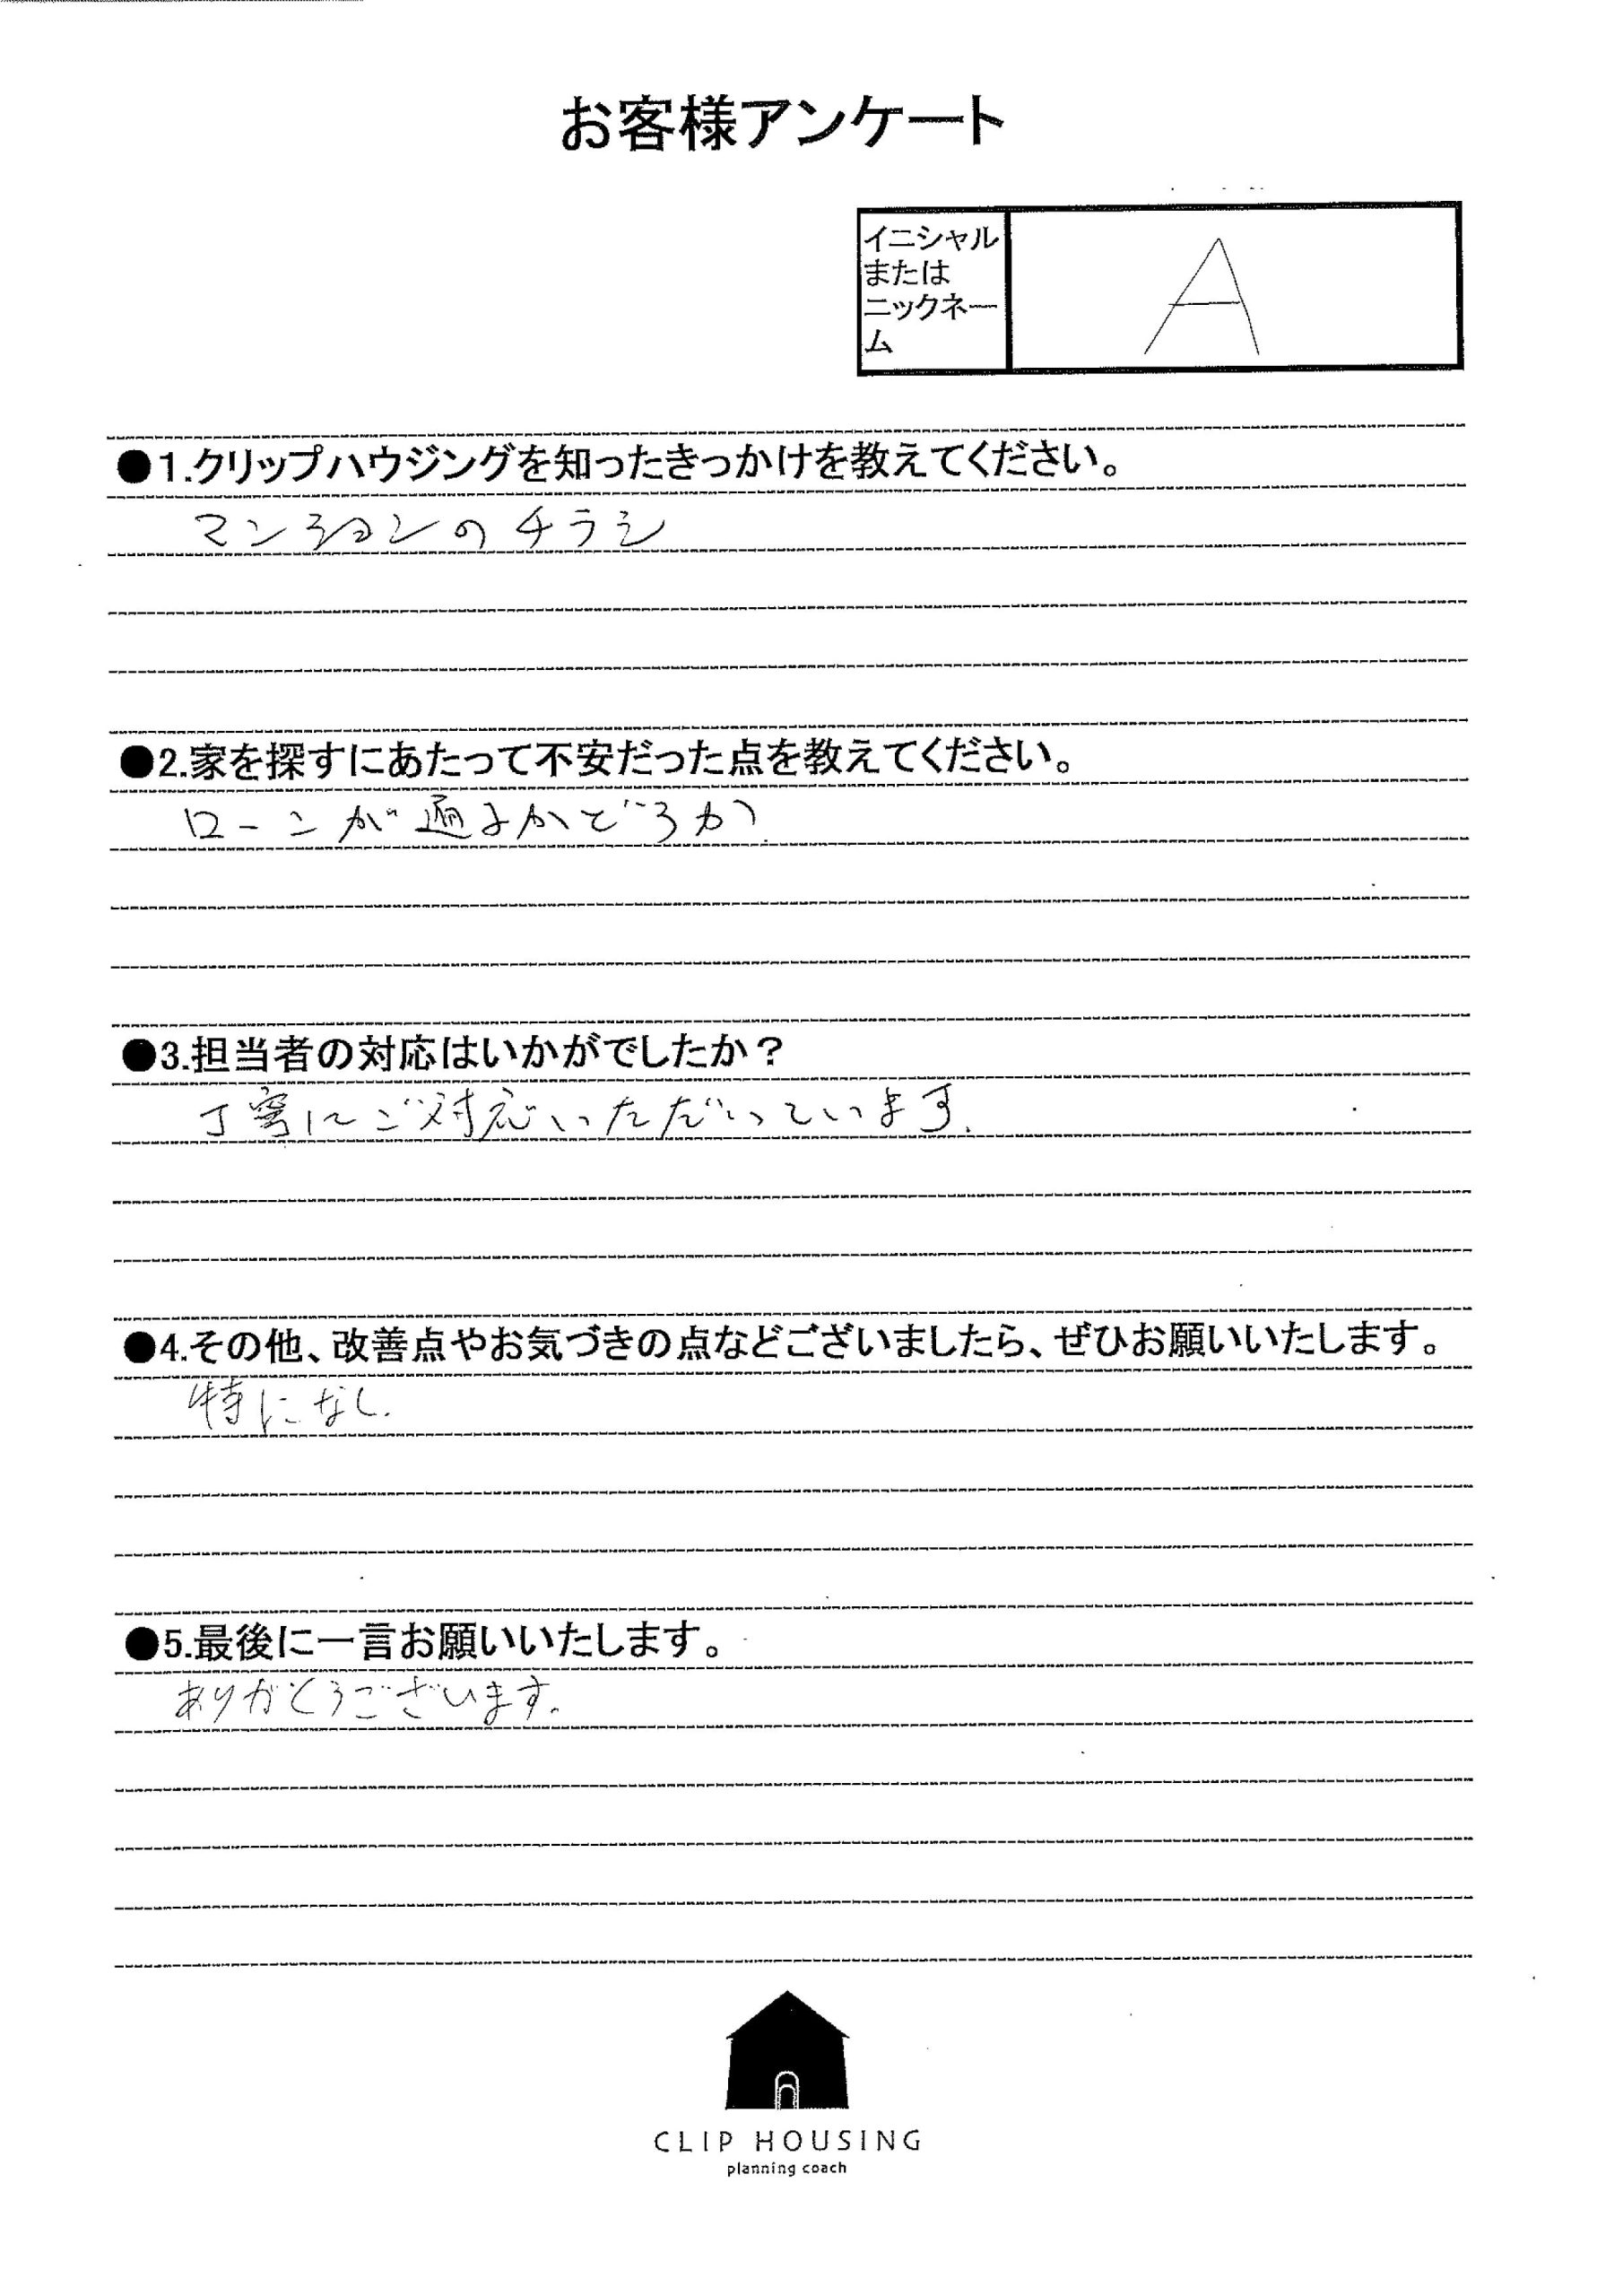 お客様アンケート
イニシャル
または
ニックネー
ム
A
●1.クリップハウジングを知ったきっかけを教えてください。
マンションのチラシ
●2.家を探すにあたって不安だった点を教えてください。
ローンが通るかどうか.
●3.担当者の対応はいかがでしたか？
丁寧にご対応いただいています.
●4.その他、改善点やお気づきの点などございましたら、ぜひお願いいたします。
特になし.
●5.最後に一言お願いいたします。
ありがとうございます.
CLIP HOUSING
planning coach